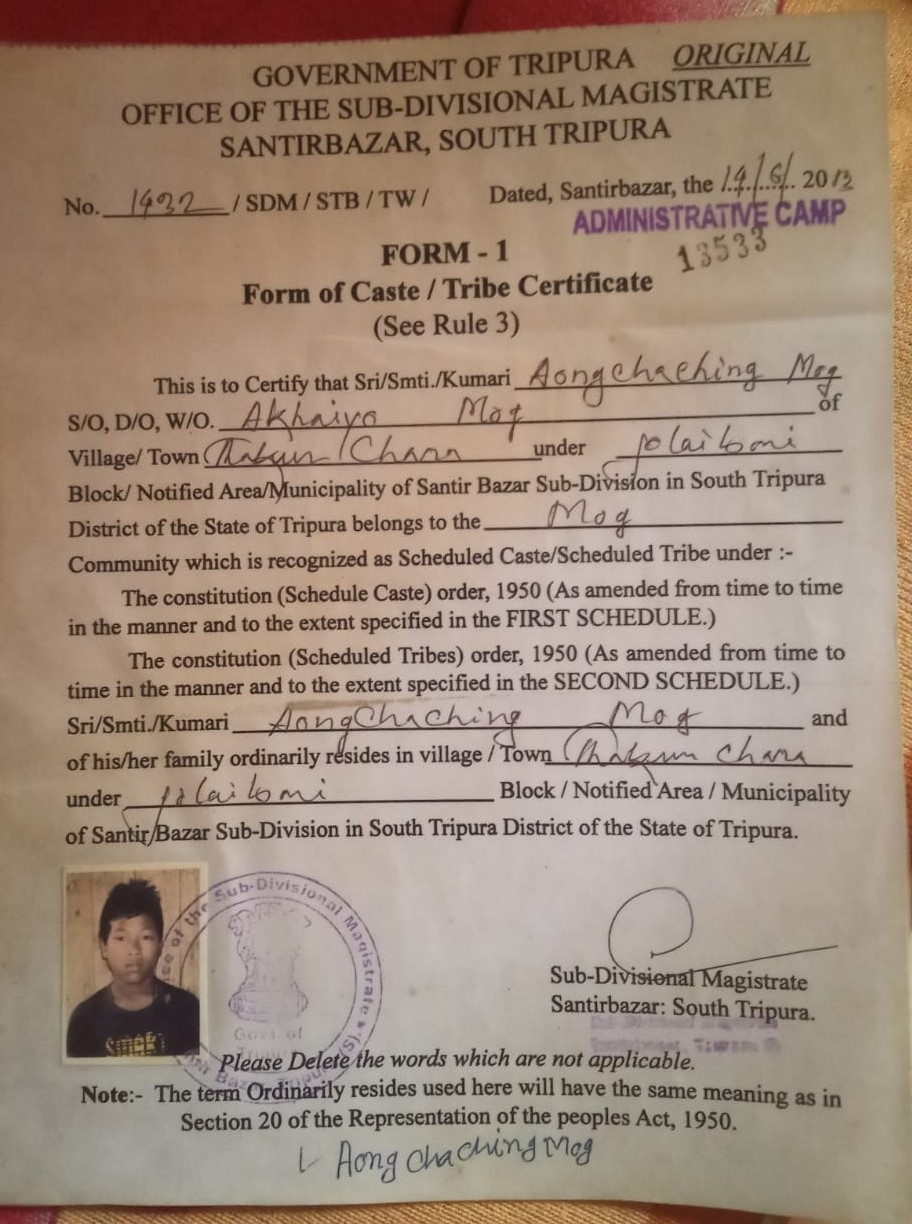 GOVERNMENT OF TRIPURA ORIGINAL
OFFICE OF THE SUB-DIVISIONAL MAGISTRATE
SANTIRBAZAR, SOUTH TRIPURA
No. 1432 / SDM / STB / TW / Dated, Santirbazar, the 14/6/ 2013
ADMINISTRATIVE CAMP
13533
FORM - 1
Form of Caste / Tribe Certificate
(See Rule 3)
This is to Certify that Sri/Smti./Kumari Aongchaching Mog
S/O, D/O, W/O. Akhaiyo Mog of
Village/ Town Thakun Chara under
Block/ Notified Area/Municipality of Santir Bazar Sub-Division in South Tripura
District of the State of Tripura belongs to the Mog
Community which is recognized as Scheduled Caste/Scheduled Tribe under :-
The constitution (Schedule Caste) order, 1950 (As amended from time to time
in the manner and to the extent specified in the FIRST SCHEDULE.)
The constitution (Scheduled Tribes) order, 1950 (As amended from time to
time in the manner and to the extent specified in the SECOND SCHEDULE.)
Sri/Smti./Kumari AongChaching Mog and
of his/her family ordinarily resides in village / Town Thakun Chara
under Block / Notified Area / Municipality
of Santir Bazar Sub-Division in South Tripura District of the State of Tripura.
of the Sub-Divisional Magistrate
Govt of
Sub-Divisional Magistrate
Santirbazar: South Tripura.
Please Delete the words which are not applicable.
Note:- The term Ordinarily resides used here will have the same meaning as in
Section 20 of the Representation of the peoples Act, 1950.
Aong chaching Mog